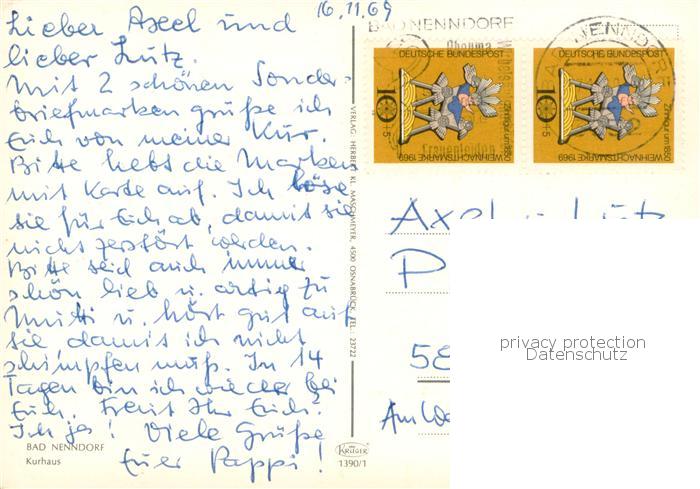 16.11.69
Lieber Axel und
lieber Lutz.
Mit 2 schönen Sonder-
briefmarken grüße ich
Euch von meiner Kur.
Bitte hebt die Marken
mit Karte auf. Ich löse
sie für Euch ab, damit sie
nicht zerstört werden.
Bitte seid auch immer
schön lieb u. artig zu
Mutti u. hört gut auf
sie damit ich nicht
schimpfen muß. In 14
Tagen bin ich wieder bei
Euch. Freut Ihr Euch?
Ich ja! Viele Grüße
Euer Pappi!
BAD NENNDORF
Kurhaus
VERLAG: HERBERT KL. MASCHMEYER, 4500 OSNABRÜCK, TEL.: 23722
KRÜGER
1390/1
BAD NENNDORF
Rheuma
Frauenleiden
DEUTSCHE BUNDESPOST
10+5
Zinnfigur um 1850
WEIHNACHTSMARKE 1969
DEUTSCHE BUNDESPOST
10+5
Zinnfigur um 1850
WEIHNACHTSMARKE 1969
NENNDORF
Axel u. Lutz
P
58
Am We
privacy protection
Datenschutz